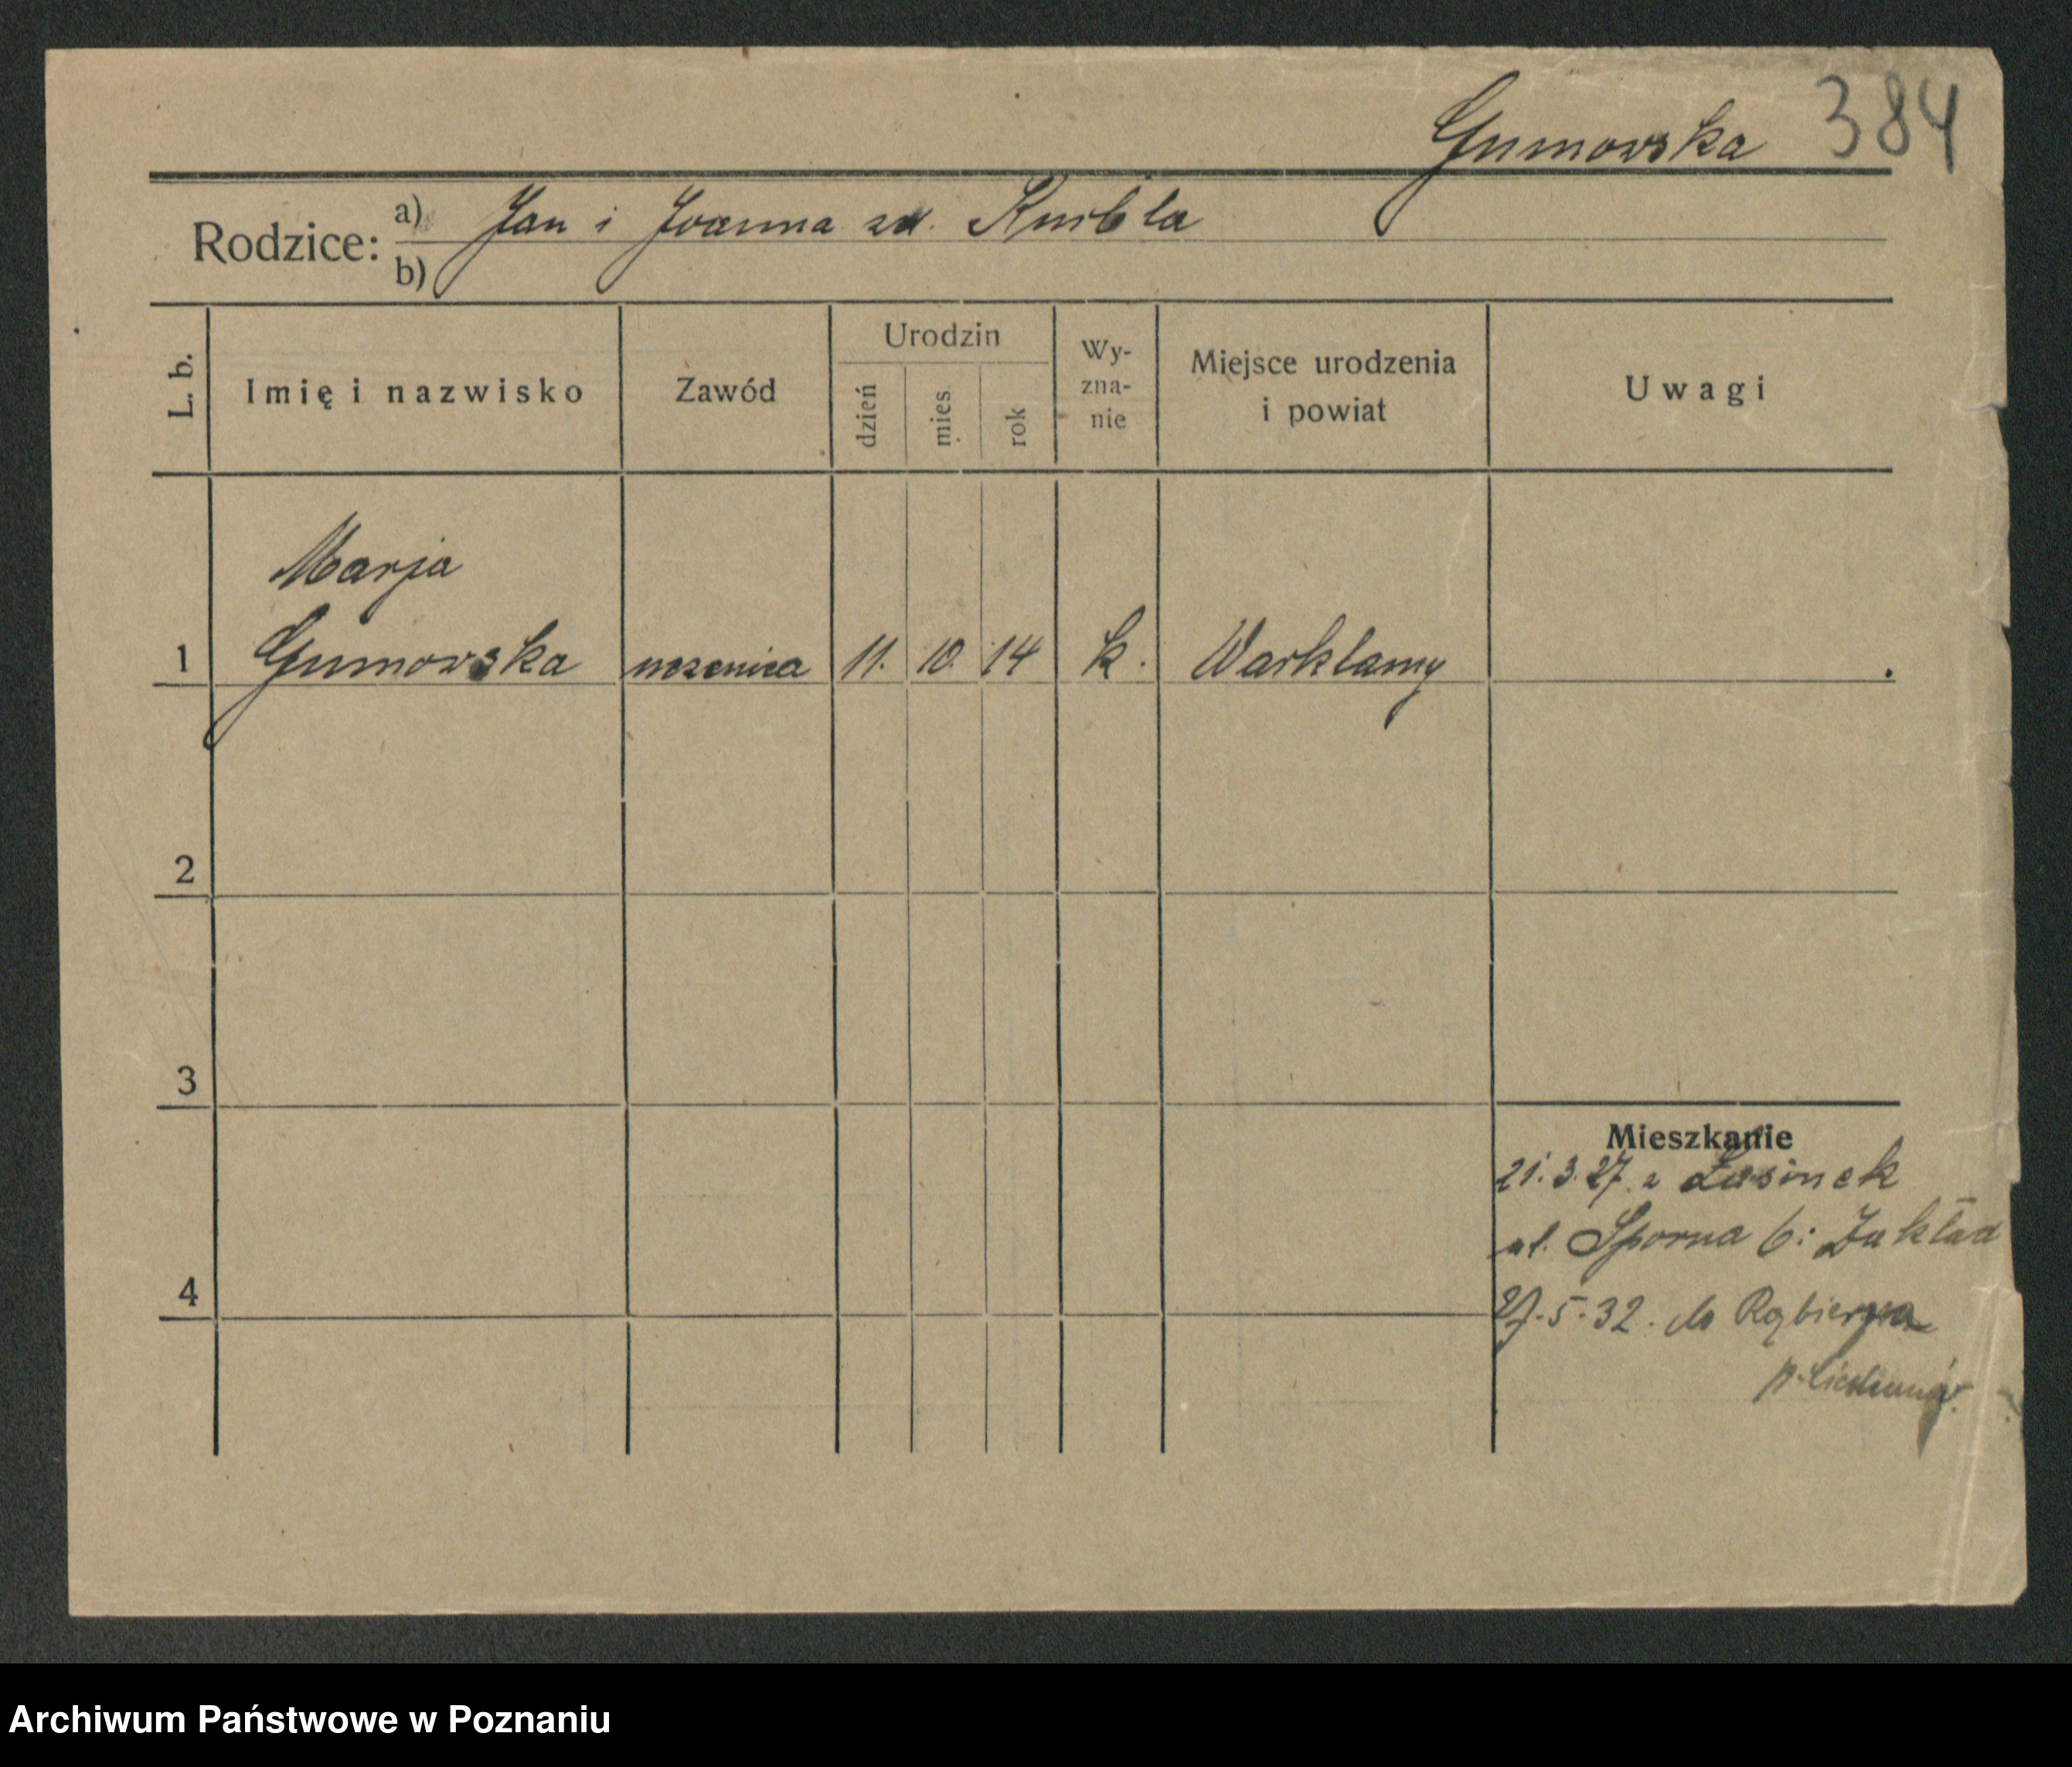 Gumowska 384
Rodzice: a) Jan i Joanna zd.
b)
L. b.
Imię i nazwisko
Zawód
Urodzin
dzień
mies.
rok
Wy-
zna-
nie
Miejsce urodzenia
i powiat
Uwagi
Marja
1 Gumowska uczenica 11. 10. 14 k. Warklamy
2
3
4
Mieszkanie
21.3.27. z Lasinek
ul. Sporna 6: Zakład
27.5.32. do
Archiwum Państwowe w Poznaniu